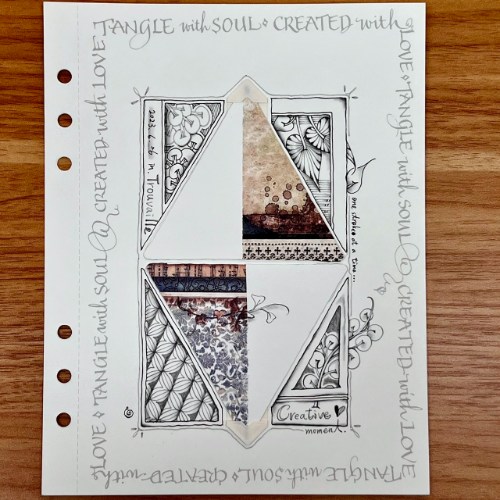 TANGLE with SOUL ⋄ CREATED with
LOVE ⋄ TANGLE with SOUL @ CREATED with LOVE
TANGLE with SOUL ⋄ CREATED with
LOVE ⋄ TANGLE with SOUL @ CREATED with LOVE
in Trouvaille
one stroke at a time...
Creative
moment